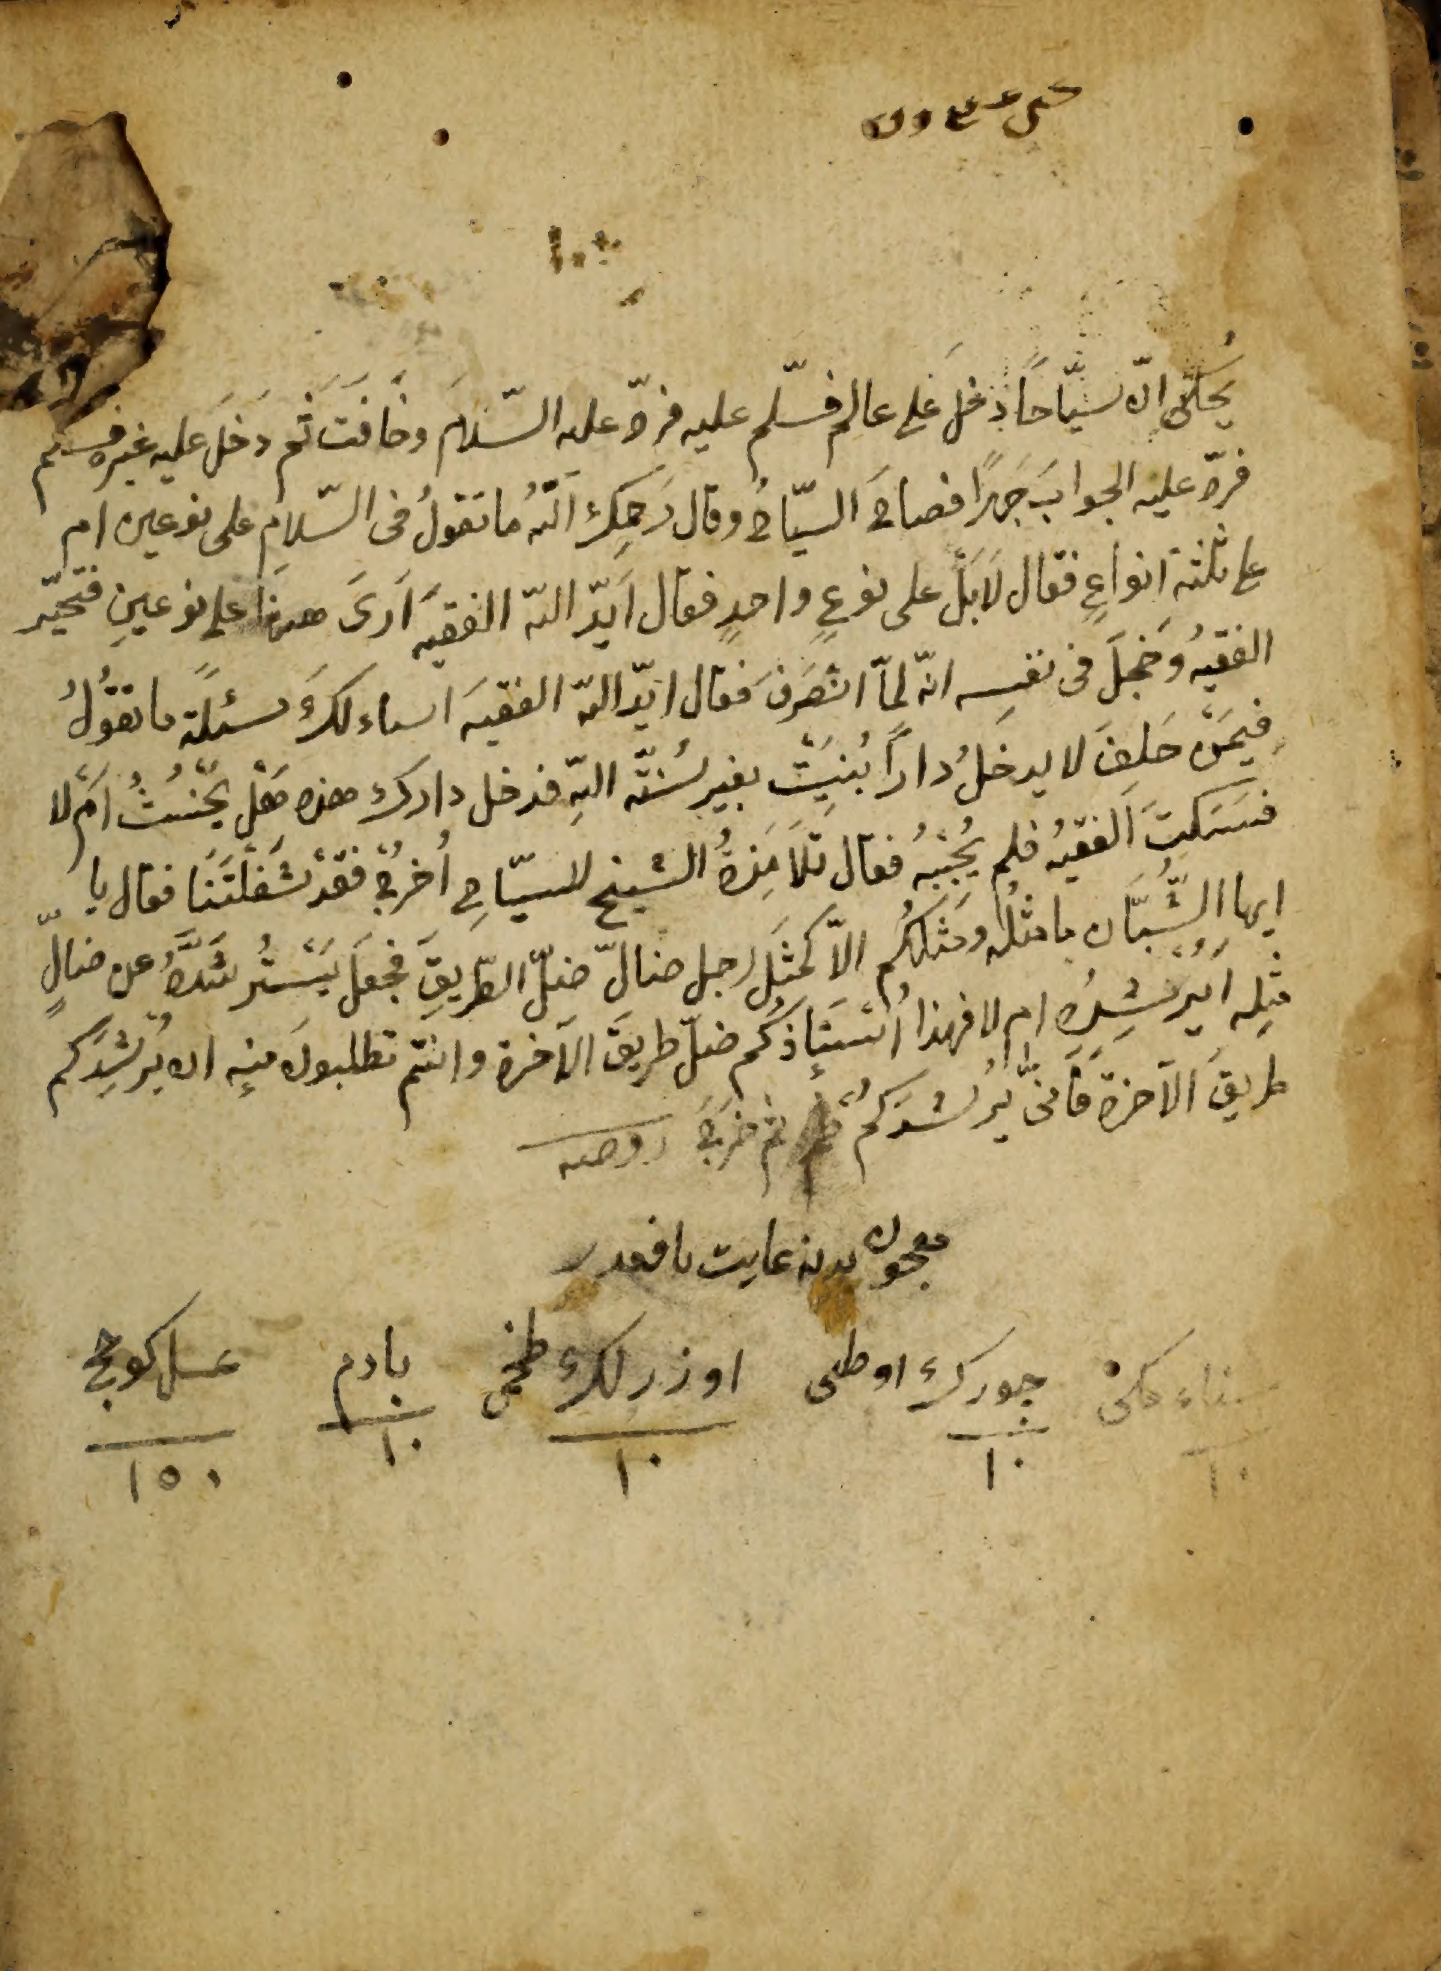 يُحكى ان سيّاحاً دخلَ على عالم فسلّم عليه فردّ عليه السّلامَ وخَافَتَ ثم دَخَلَ عليه غيره فسلم
فردّ عليه الجوابَ جَهرًا فصاحَ السيّاحُ وقال رَحمِكَ اللّهُ ما تقولُ فى السّلامِ على نوعين ام
على ثلثة انواعٍ فقال لَا بَلْ على نوعٍ واحدٍ فقال اَيّدَ اللّه الفقيهَ اَرىَ هذا على نوعينِ فتحيّر
الفقيهُ وَخجِلَ فى نفسِه انّه لمّا انصَرَفَ فقال ايّد اللّه الفقيهَ اساءلكَ مسئلةً ما تقوُلُ
فيمَنْ حَلِفَ لا يدخلُ داراً بُنيَتْ بغيرِ سُنّة اللّهِ فدخل داركَ هذه هَلْ يحْنثُ اَمْ لا
فسَكتَ الفقيهُ فلم يُجْبهُ فقال تلَامِذةُ الشيخ للسيّاحِ اُخرجْ فقدْ شَغلْتَنَا فقال يا
ايها الشُّبّان ما مثلُه ومَثلكُم الاّ كمثَلِ رجل ضالّ ضلّ الطّريقَ فجعلَ يَسْترشدُ عن ضالٍّ
مثِلِه اَيُرْشِدُه ام لا فهذا اُستَاذكُم ضلّ طريقَ الآخرة وانتم تطلبونَ منِه ان يُرشِدَكم
طريقَ الآخرة فَأنّى يُرشدَكمْ ثم خرَجَ روضه
معجون بدنه غايت نافعدر
سناء مكى جورك اوطى اوزرلك طخمى بادم عسل كوجى
١٠ ١٠ ١٠ ١٠ ١٥٠